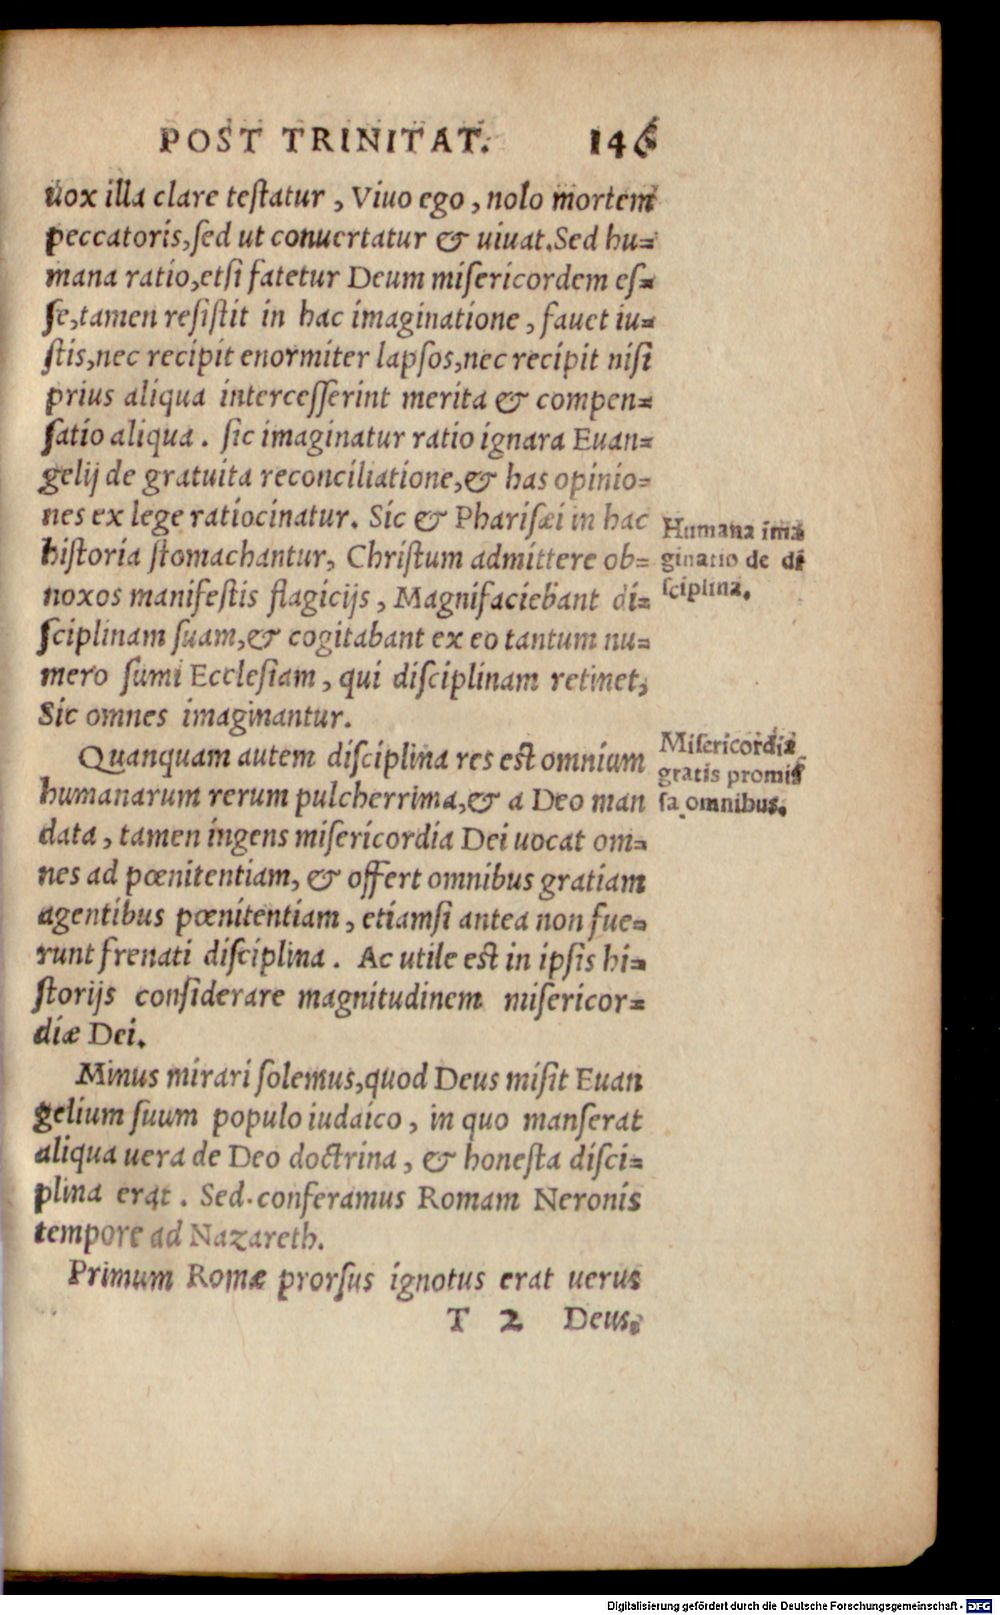 POST TRINITAT. 146
uox illa clare testatur, Viuo ego, nolo mortem
peccatoris, sed ut conuertatur & uiuat. Sed hu=
mana ratio, etsi fatetur Deum misericordem es=
se, tamen resistit in hac imaginatione, fauet iu=
stis, nec recipit enormiter lapsos, nec recipit nisi
prius aliqua intercesserint merita & compen=
satio aliqua. sic imaginatur ratio ignara Euan=
gelij de gratuita reconciliatione, & has opinio=
nes ex lege ratiocinatur. Sic & Pharisæi in hac
historia stomachantur, Christum admittere ob=
noxos manifestis flagicijs, Magnifaciebant di=
sciplinam suam, & cogitabant ex eo tantum nu=
mero sumi Ecclesiam, qui disciplinam retinet,
Sic omnes imaginantur.
Humana ima
ginatio de di
sciplina.
Quanquam autem disciplina res est omnium
humanarum rerum pulcherrima, & a Deo man
data, tamen ingens misericordia Dei uocat om=
nes ad pœnitentiam, & offert omnibus gratiam
agentibus pœnitentiam, etiamsi antea non fue=
runt frenati disciplina. Ac utile est in ipsis hi=
storijs considerare magnitudinem misericor=
diæ Dei.
Misericordia
gratis promis
sa omnibus.
Minus mirari solemus, quod Deus misit Euan
gelium suum populo iudaico, in quo manserat
aliqua uera de Deo doctrina, & honesta disci=
plina erat. Sed conferamus Romam Neronis
tempore ad Nazareth.
Primum Romæ prorsus ignotus erat uerus
T 2 Deus,
Digitalisierung gefördert durch die Deutsche Forschungsgemeinschaft - DFG